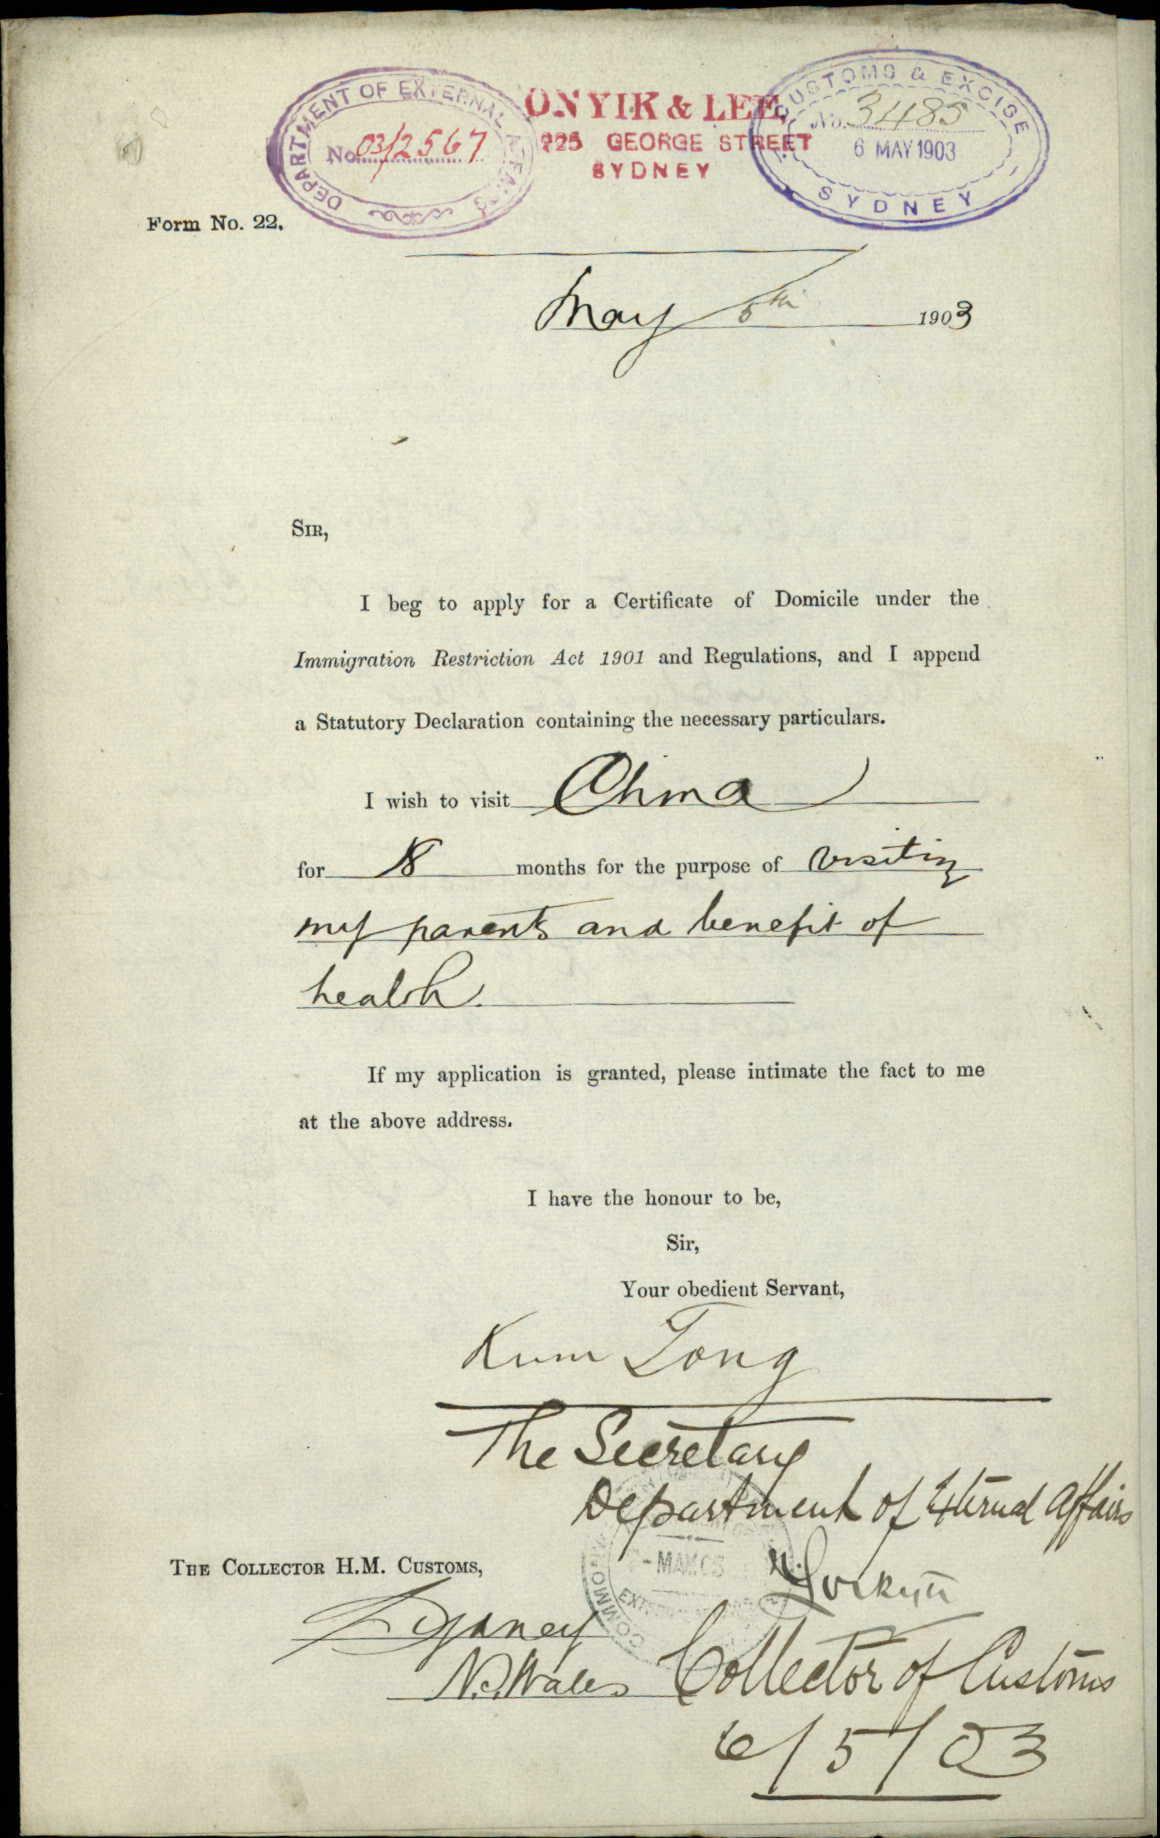 DEPARTMENT OF EXTERNAL AFFAIRS
No. 03/2567
ON YIK & LEE
225 GEORGE STREET
SYDNEY
CUSTOMS & EXCISE
No. 3485
6 MAY 1903
SYDNEY
Form No. 22.
May 5th 1903
SIR,
I beg to apply for a Certificate of Domicile under the
Immigration Restriction Act 1901 and Regulations, and I append
a Statutory Declaration containing the necessary particulars.
I wish to visit China
for 18 months for the purpose of visiting
my parents and benefit of
health.
If my application is granted, please intimate the fact to me
at the above address.
I have the honour to be,
Sir,
Your obedient Servant,
Kum Tong
The Secretary
Department of External Affairs
THE COLLECTOR H.M. CUSTOMS,
Sydney
N.S. Wales
Collector of Customs
6/5/03